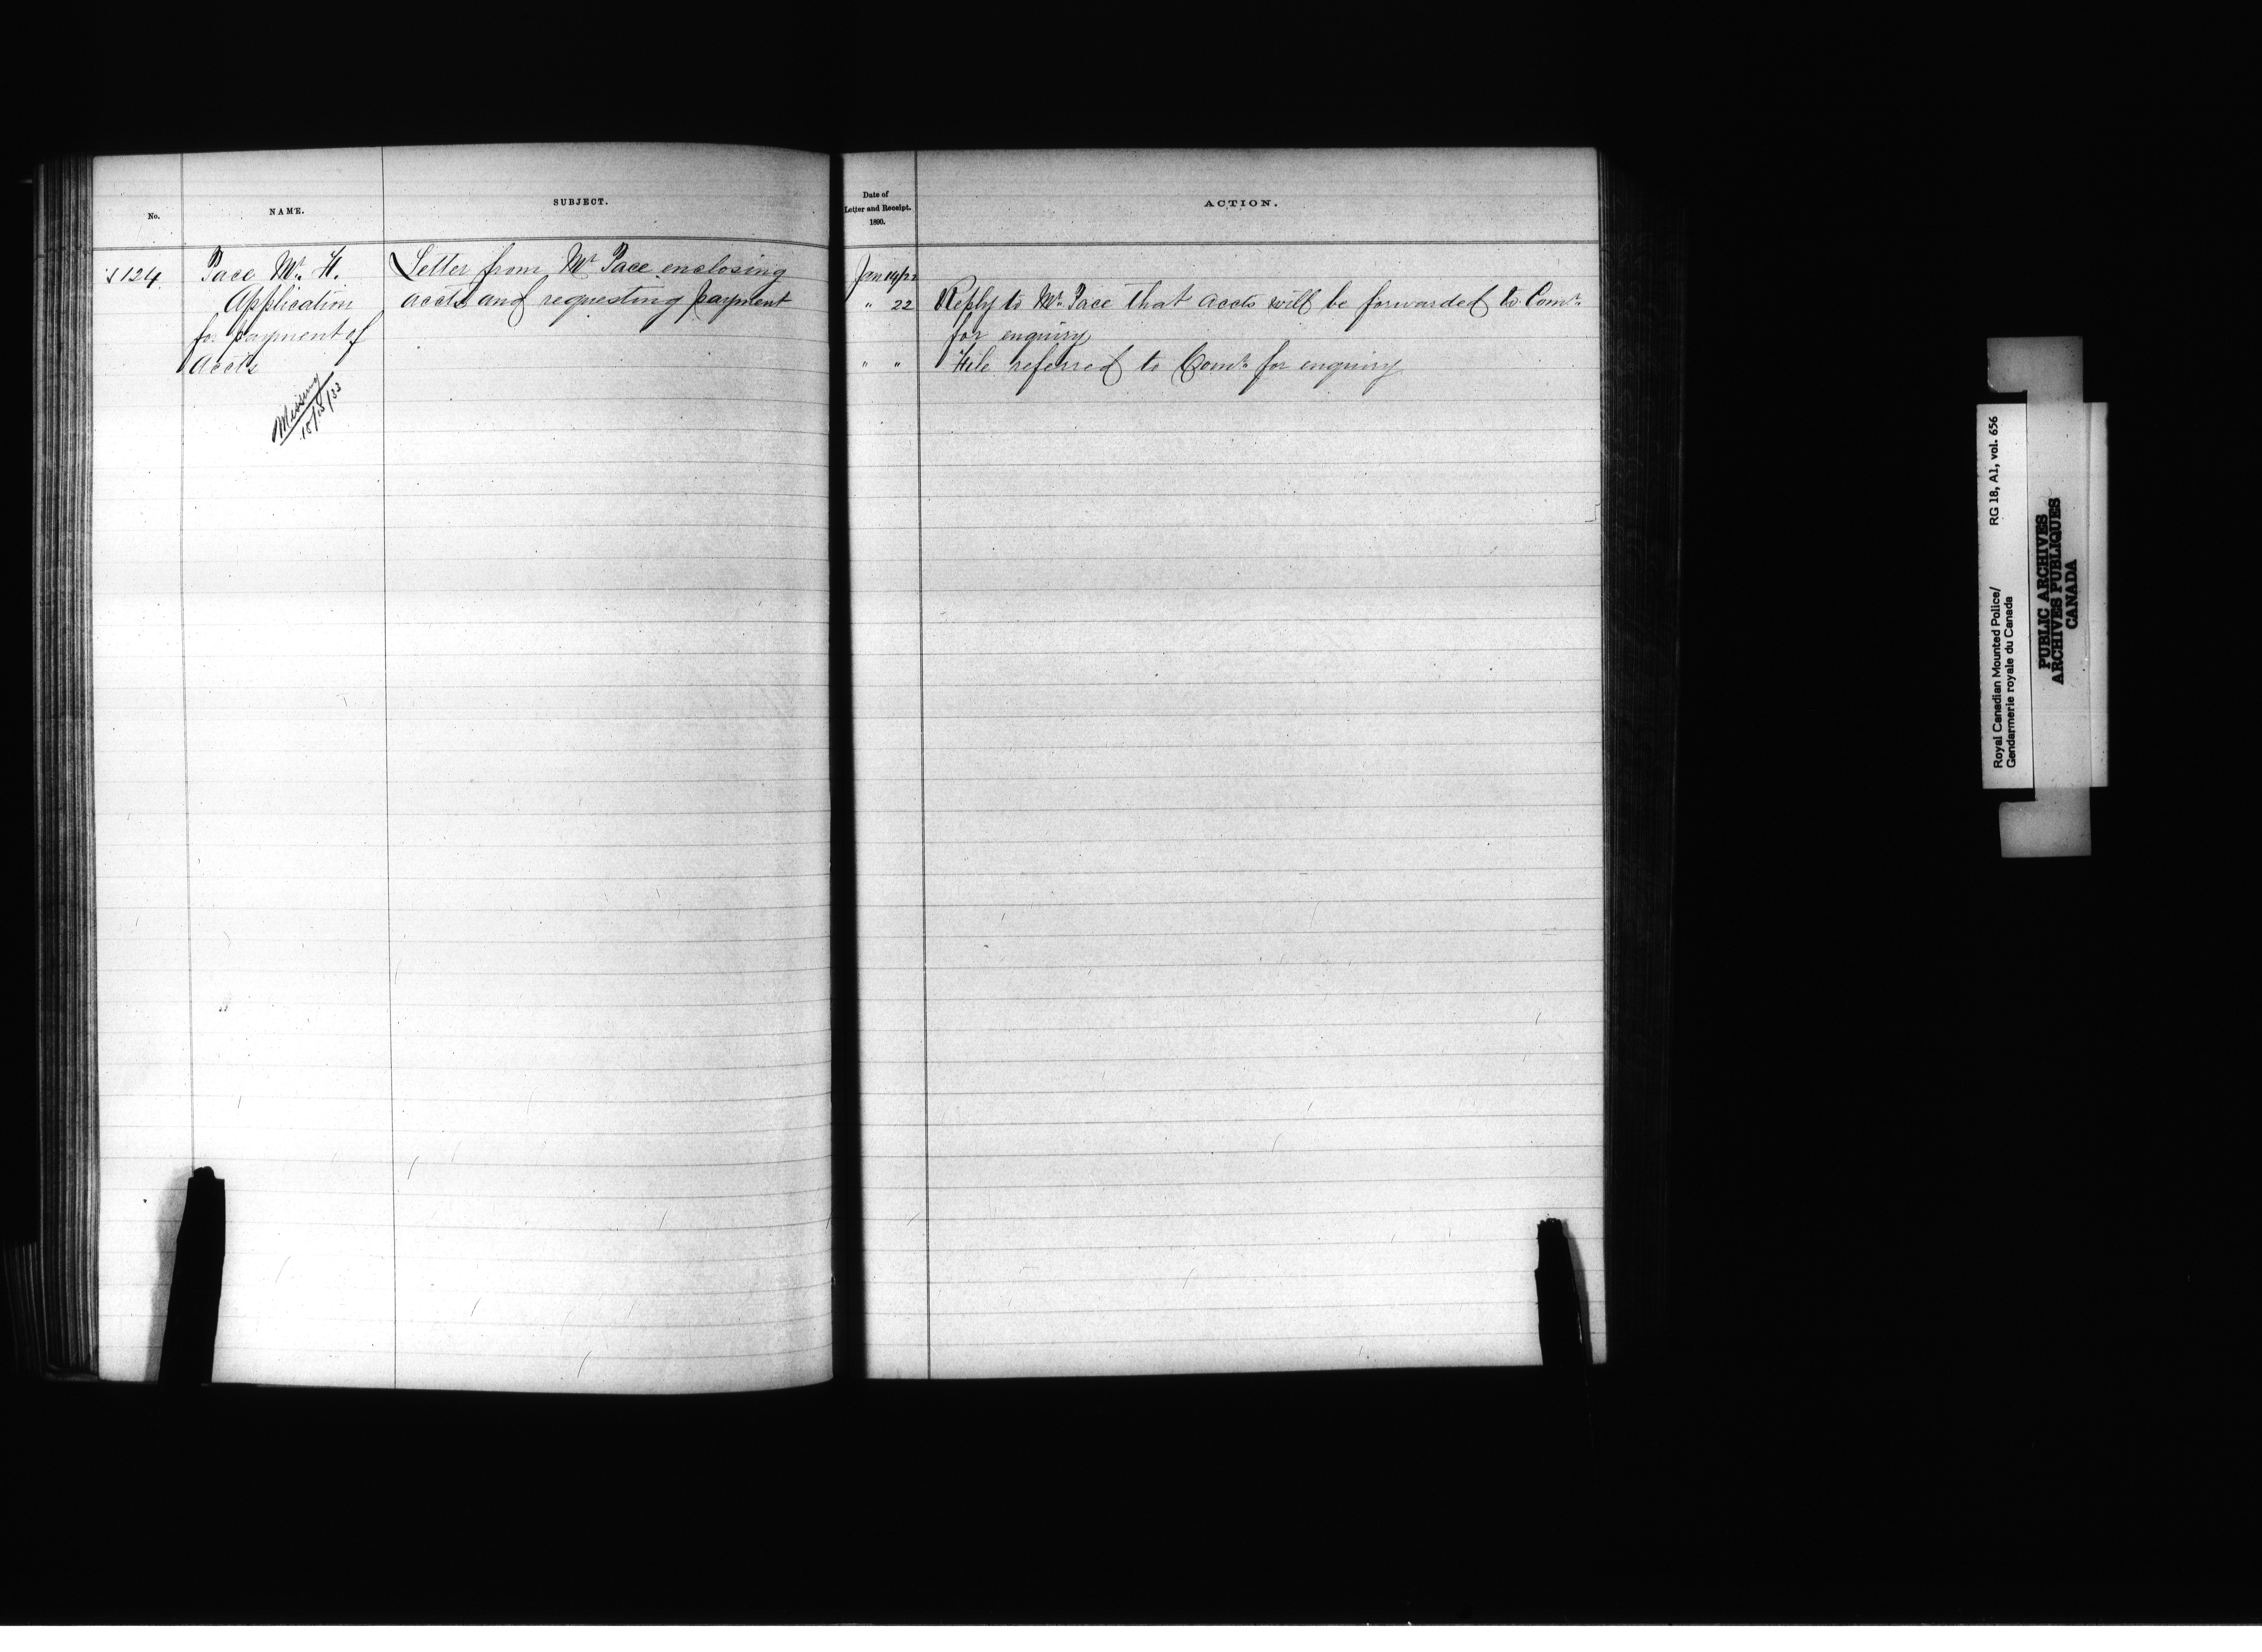 No.
NAME.
SUBJECT.
124
Pace Mr. H.
Application
for payment of
Accts
Missing
Letter from Mr Pace enclosing
accts and requesting payment
Date of
Letter and Receipt.
1890.
ACTION.
Jan 14/22
" 22 Reply to Mr. Pace that accts will be forwarded to Comr.
for enquiry
" " File referred to Comr. for enquiry
Royal Canadian Mounted Police/ RG 18, A1, vol. 656
Gendarmerie royale du Canada
PUBLIC ARCHIVES
ARCHIVES PUBLIQUES
CANADA